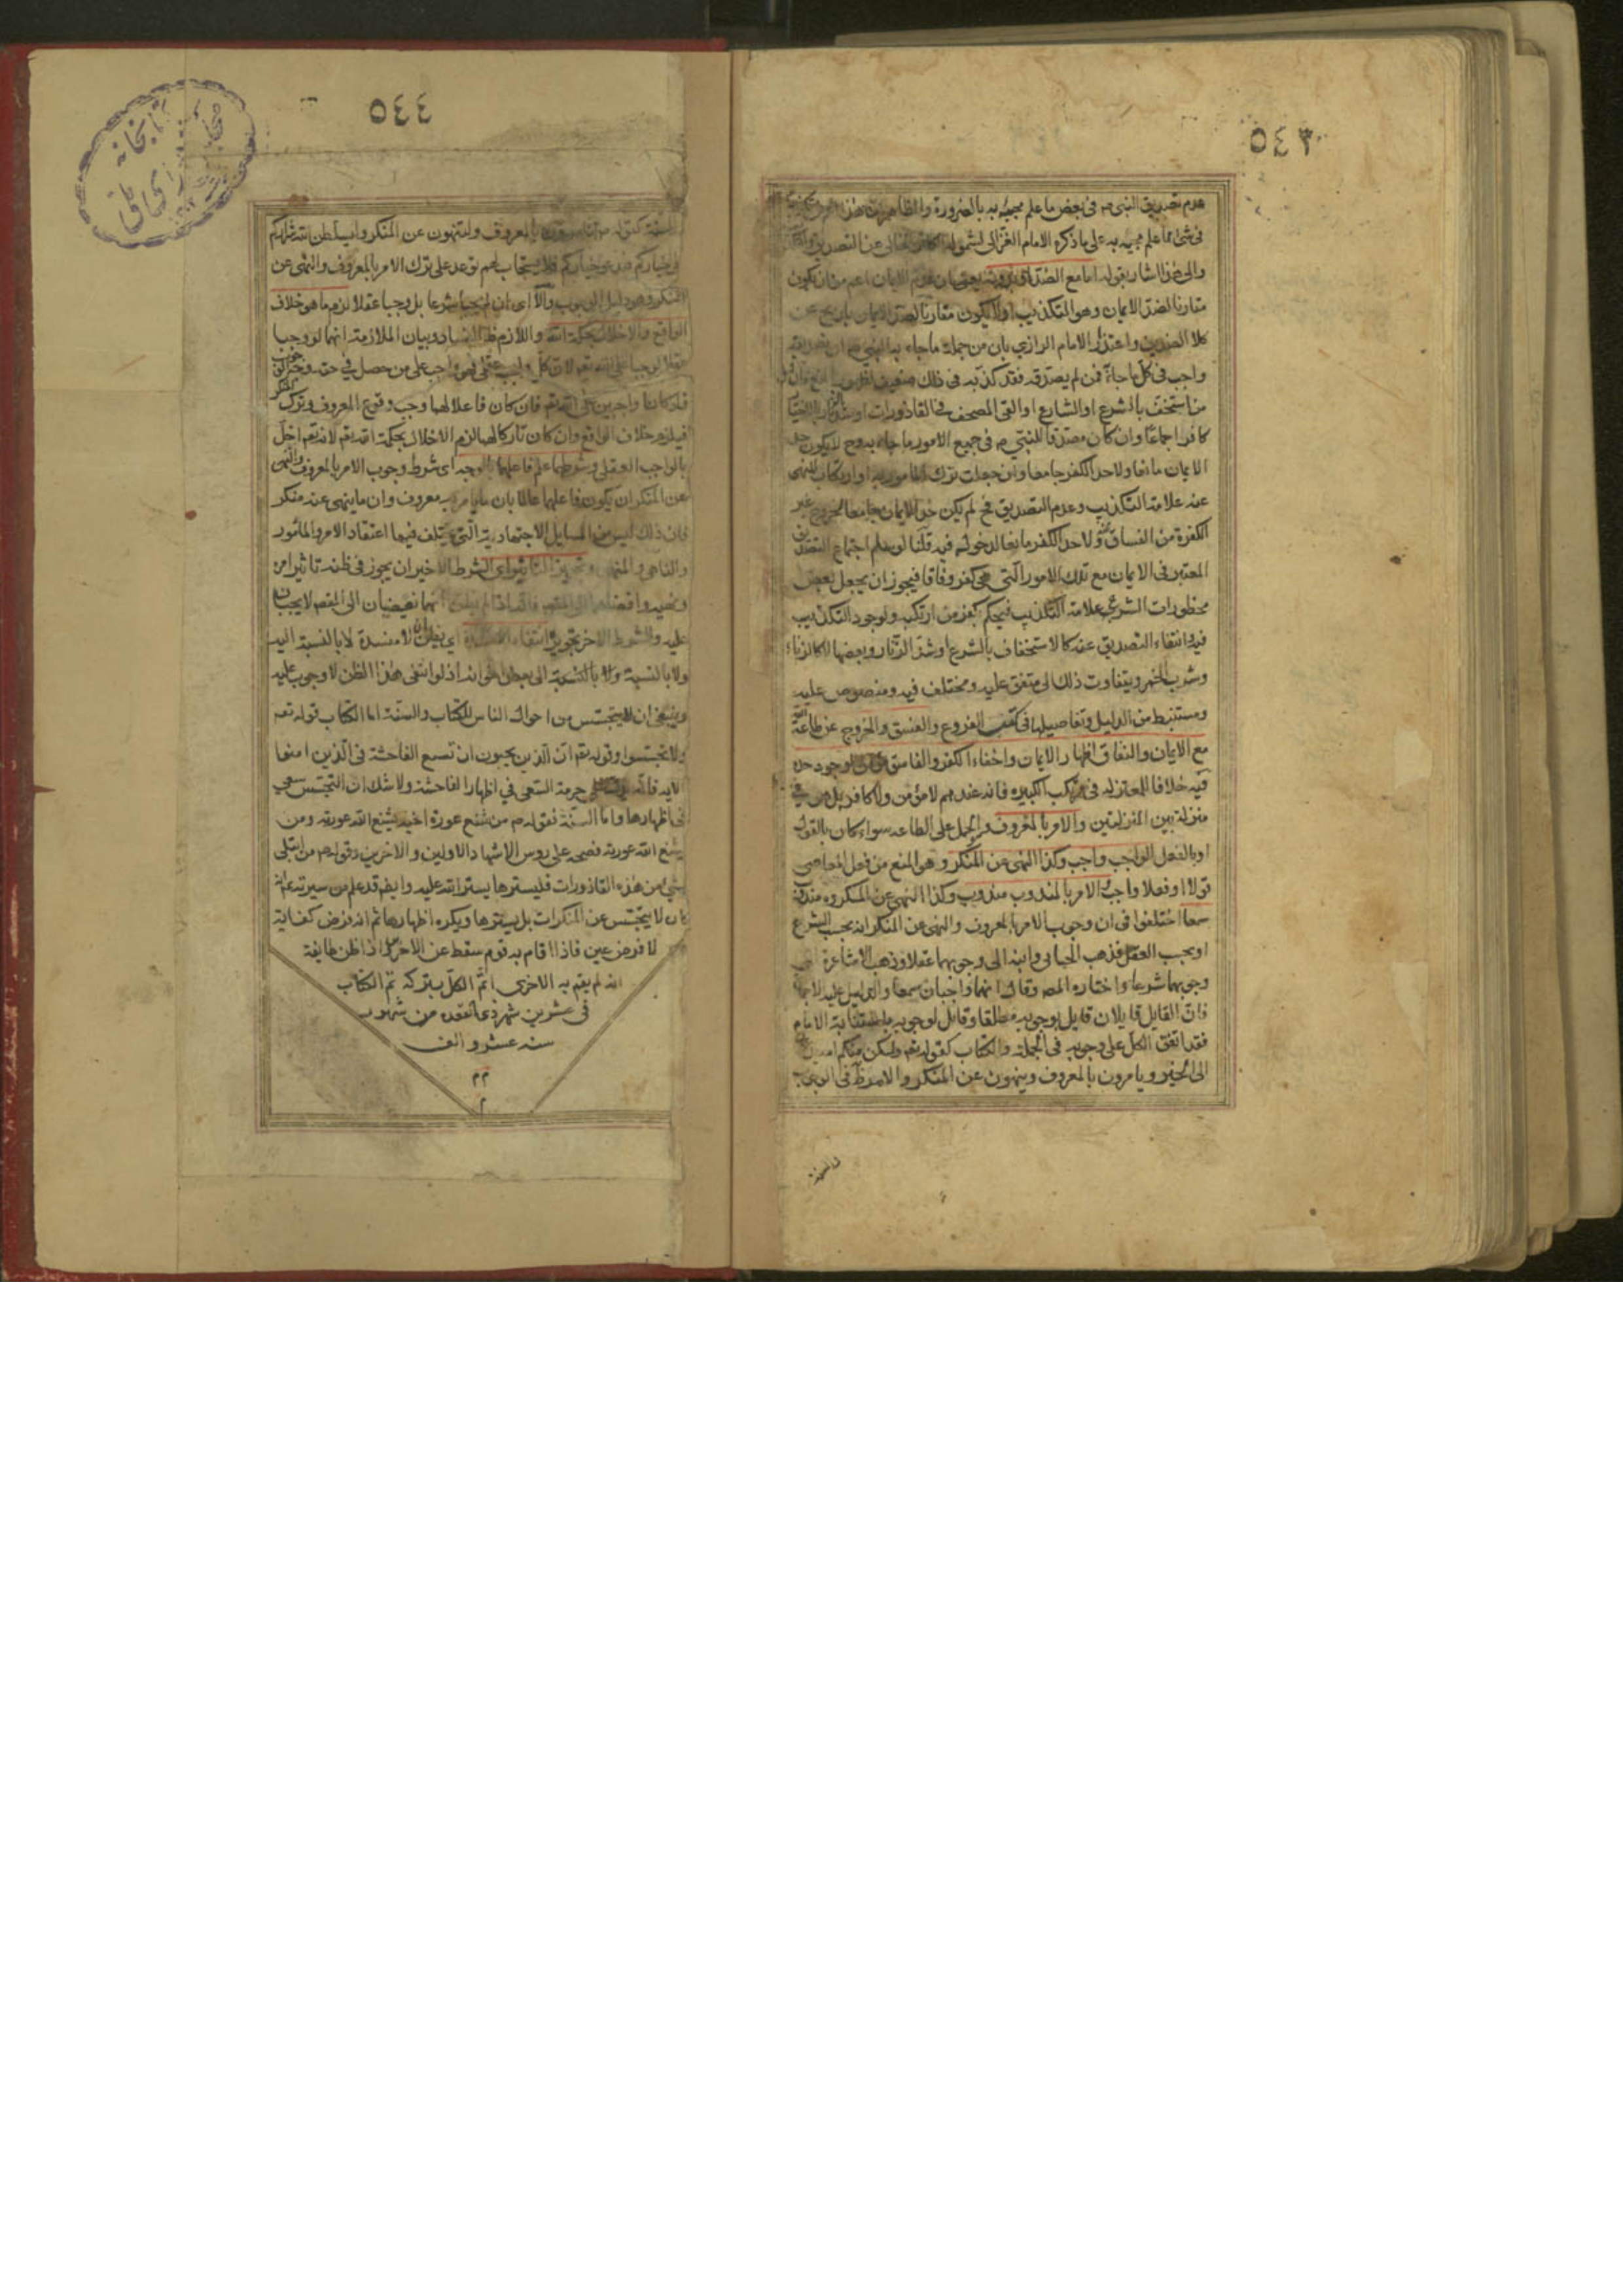 ٥٤٣
عدم تصديق النبى ص فى بعض ما علم مجيئه به بالضرورة والظاهر ان هذا
فى شئ مما علم مجيه به على ما ذكره الامام الغزالى لشموله الكافر الخالى عن التصديق
والى هذا اشار بقوله اما مع الضد او بدونه يعنى ان عدم الايمان اعم من ان يكون
مقارنا لضد الايمان وهو التكذيب او لا يكون مقارنا لضد الايمان بان يخ عن
كلا الضدين واعتذر الامام الرازي بان من جملة ما جاء به النبى ص ان تصديقه
واجب فى كل ما جاء به فمن لم يصدقه فقد كذبه فى ذلك ضعيف
من استخف بالشرع او الشارع او القى المصحف فى القاذورات او شد الزنار بالاختيار
كافر اجماعا وان كان مصدقا للنبى ص فى جميع الامور ما جاء به وح لا يكون حد
الايمان مانعا ولا حد الكفر جامعا وان جعلت ترك المامور به او ارتكاب المنهى
عنه علامة التكذيب وعدم التصديق فح لم يكن حد الايمان جامعا لخروج غير
الكفرة من الفساق عنه ولا حد الكفر مانعا لدخولهم فيه قلنا لو سلم اجتماع التصديق
المعتبر فى الايمان مع تلك الامور التى هى كفر وفاقا فيجوز ان يجعل بعض
محظورات الشرع علامة التكذيب فيحكم بكفر من ارتكبه ولوجود التكذيب
فيه وانتفاء التصديق عنه كالاستخفاف بالشرع او شد الزنار وبعضها لا كالزناء
وشرب الخمر ويتفاوت ذلك الى متفق عليه ومختلف فيه ومنصوص عليه
ومستنبط من الدليل وتفاصيلها فى كتب الفروع والفسق والخروج عن طاعة الله
مع الايمان والنفاق اظهار الايمان واخفاء الكفر والفاسق مؤمن لوجود حده
فيه خلافا للمعتزله فى مرتكب الكبيره فانه عندهم لا مؤمن ولا كافر بل هو فى
منزلة بين المنزلتين والامر بالمعروف والحمل على الطاعه سواء كان بالقول
او بالفعل الواجب واجب وكذا النهى عن المنكر وهو المنع من فعل المعاصى
قولا او فعلا واجب والامر بالمندوب مندوب وكذا النهى عن المكروه مندوب
سمعا اختلفوا فى ان وجوب الامر بالمعروف والنهى عن المنكر انه بحسب الشرع
او بحسب العقل فذهب الجبائى وابنه الى وجوبهما عقلا وذهب الاشاعرة الى
وجوبهما شرعا واختاره المص وقال انهما واجبان سمعا والدليل عليه الاجماع
فان القايل قايلان قايل بوجوبه مطلقا وقايل لوجوبه باستنابة الامام
فقد اتفق الكل على وجوبه فى الجملة والكتاب كقوله تعم ولتكن منكم امة يدعون
الى الخير ويامرون بالمعروف وينهون عن المنكر والامر ظ فى الوجوب
والسنة
٥٤٤
والسنة كقوله ص لتامرون بالمعروف ولتنهون عن المنكر او ليسلطن الله شراركم
على خياركم فيدعو خياركم فلا يستجاب لهم توعد على ترك الامر بالمعروف والنهى عن
المنكر وهو دليل الوجوب والا اى ان لم يجبا شرعا بل وجبا عقلا لزم ما هو خلاف
الواقع والاخلال بحكمة الله واللازم ظ الفساد وبيان الملازمة انهما لو وجبا
عقلا لوجبا على الله تعم لان كل واجب عقلى فهو واجب على من حصل فى حقه وجه الوجوب
فلو كانا واجبين على الله تعم فان كان فاعلا لهما وجب وقوع المعروف وترك المنكر
فيلزم خلاف الواقع وان كان تاركا لهما لزم الاخلال بحكمة الله تعم لانه تعم اخل
بالواجب العقلى وشرطهما علم فاعلهما بالوجه اى شرط وجوب الامر بالمعروف والنهى
عن المنكر ان يكون فاعلهما عالما بان ما يامر به معروف وان ما ينهى عنه منكر
فان ذلك ليس من المسايل الاجتهادية التى يختلف فيها اعتقاد الامر والمأمور
والناهى والمنهى وتجويز التاثير اى الشرط الاخير ان يجوز فى ظنه تاثير امره
ونهيه وافضائه الى المقص فانه اذا لم يظن انهما يفضيان الى المقص لا يجبان
عليه والشرط الاخر تجويز انتفاء المفسدة اى يظن ان لا مفسدة لا بالنسبة اليه
ولا بالنسبة الى بعض اخوانه اذ لو انتفى هذا الظن لا وجوب عليه
وينبغى ان لا يتجسس من احوال الناس للكتاب والسنة اما الكتاب قوله تعم
ولا تجسسوا وقوله تعم ان الذين يحبون ان تشيع الفاحشة فى الذين امنوا
الايه فانه يدل على حرمة السعى فى اظهار الفاحشة ولا شك ان التجسس سعى
فى اظهارها واما السنة فقوله ص من تتبع عورة اخيه يتتبع الله عورته ومن
يتتبع الله عورته فضحه على روس الاشهاد الاولين والاخرين وقوله ص من ابتلى
بشئ من هذه القاذورات فليسترها يستر الله عليه وايض قد علم من سيرته ع انه
كان لا يتجسس عن المنكرات بل يسترها ويكره اظهارها ثم انه فرض كفاية
لا فرض عين فاذا قام به قوم سقط عن الاخر اذا ظن طايفة
انه لم يقم به الاخرى اثم الكل بتركه تم الكتاب
فى عشرين شهر ذى القعده من شهور
سنه عشر والف
م م
م
كتابخانه
مجلس شوراى ملى